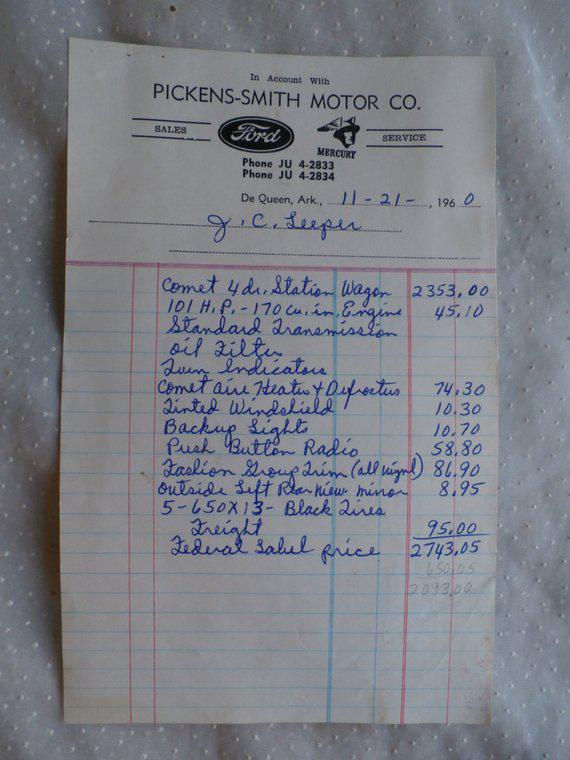 In Account With
PICKENS-SMITH MOTOR CO.
SALES Ford MERCURY SERVICE
Phone JU 4-2833
Phone JU 4-2834
De Queen, Ark., 11-21-, 1960
J. C. Leeper
Comet 4 dr. Station Wagon 2353.00
101 H.P. - 170 cu. in. Engine 45.10
Standard Transmission
Oil Filter
Turn Indicators
Comet Aire Heater & Defroster 74.30
Tinted Windshield 10.30
Backup Lights 10.70
Push Button Radio 58.80
Fashion Group Trim (all vinyl) 86.90
Outside Left Rear View mirror 8.95
5-650X13- Black Tires
Freight 95.00
Federal Label price 2743.05
650.05
2093.00